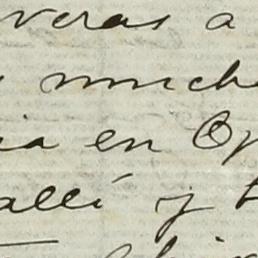 veras a
much
ia en Op
allí y